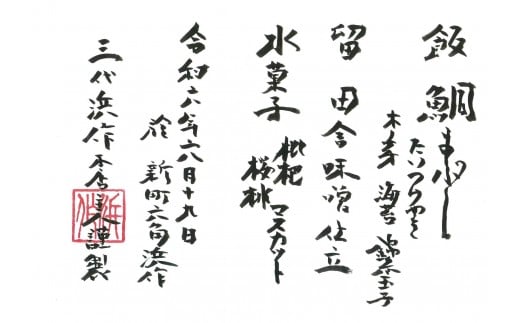 飯 鯛まぶし
木の芽 海苔 錦糸玉子
留 田舎味噌仕立
水菓子 枇杷 マスカット
桜桃
令和六年六月十九日
於 新町六角浜作
三代浜作本店主人謹製